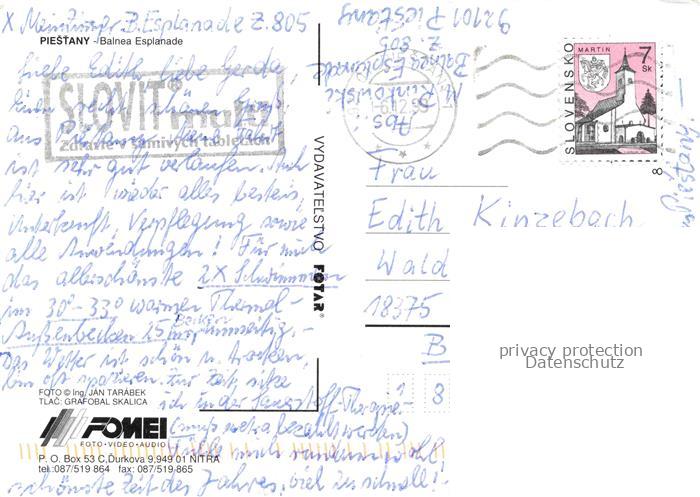 X Mein Zimmer B. Esplanade Z. 805
PIEŠŤANY - Balnea Esplanade
Liebe Edith, liebe Gerda
einen recht schönen Gruß
aus Piešťany. Meine Fahrt
ist sehr gut verlaufen. Auch
hier ist wieder alles bestens,
Unterkunft, Verpflegung sowie
alle Anwendungen! Für mich
das allerschönste 2X Schwimmen
im 30°-33° warmen Thermal-
Außenbecken 25 m
Becken
Das Wetter ist schön u. trocken,
bin oft spazieren. Zur Zeit sitze
ich in der Sauerstoff-Therapie-
(muß extra bezahlt werden)
schönste Zeit des Jahres, viel zu schnell!
SLOVIT®
Zdravie v šumivých tabletách
FOTO © Ing. JÁN TARÁBEK
TLAČ: GRAFOBAL SKALICA
FOMEI
FOTO·VIDEO·AUDIO
P. O. Box 53 C, Ďurkova 9,949 01 NITRA
tel.:087/519 864 fax: 087/519 865
VYDAVATEĽSTVO FOTAR®
Abs.
Balnea Esplanade
Z. 805
92101 Piešťany
SLOVENSKO
MARTIN
7
Sk
8
Frau
Edith Kinzebach
Wald
18375
B
1 8
privacy protection
Datenschutz